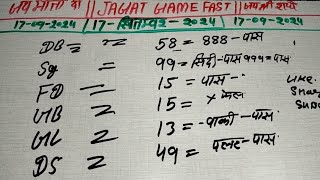 जय माता दी || JAGAT GAME FAST ||
17-09-2024 || 17 - सितम्बर - 2024 || 17-09-2024
DB = 58 = 888 - पास
Sg = 99 = सिंदी - पास 999 = पास
FD = 15 = पास - LIKE
GB = 15 = X फेल
GL = 13 = - पास
DS = 49 = पलट - पास